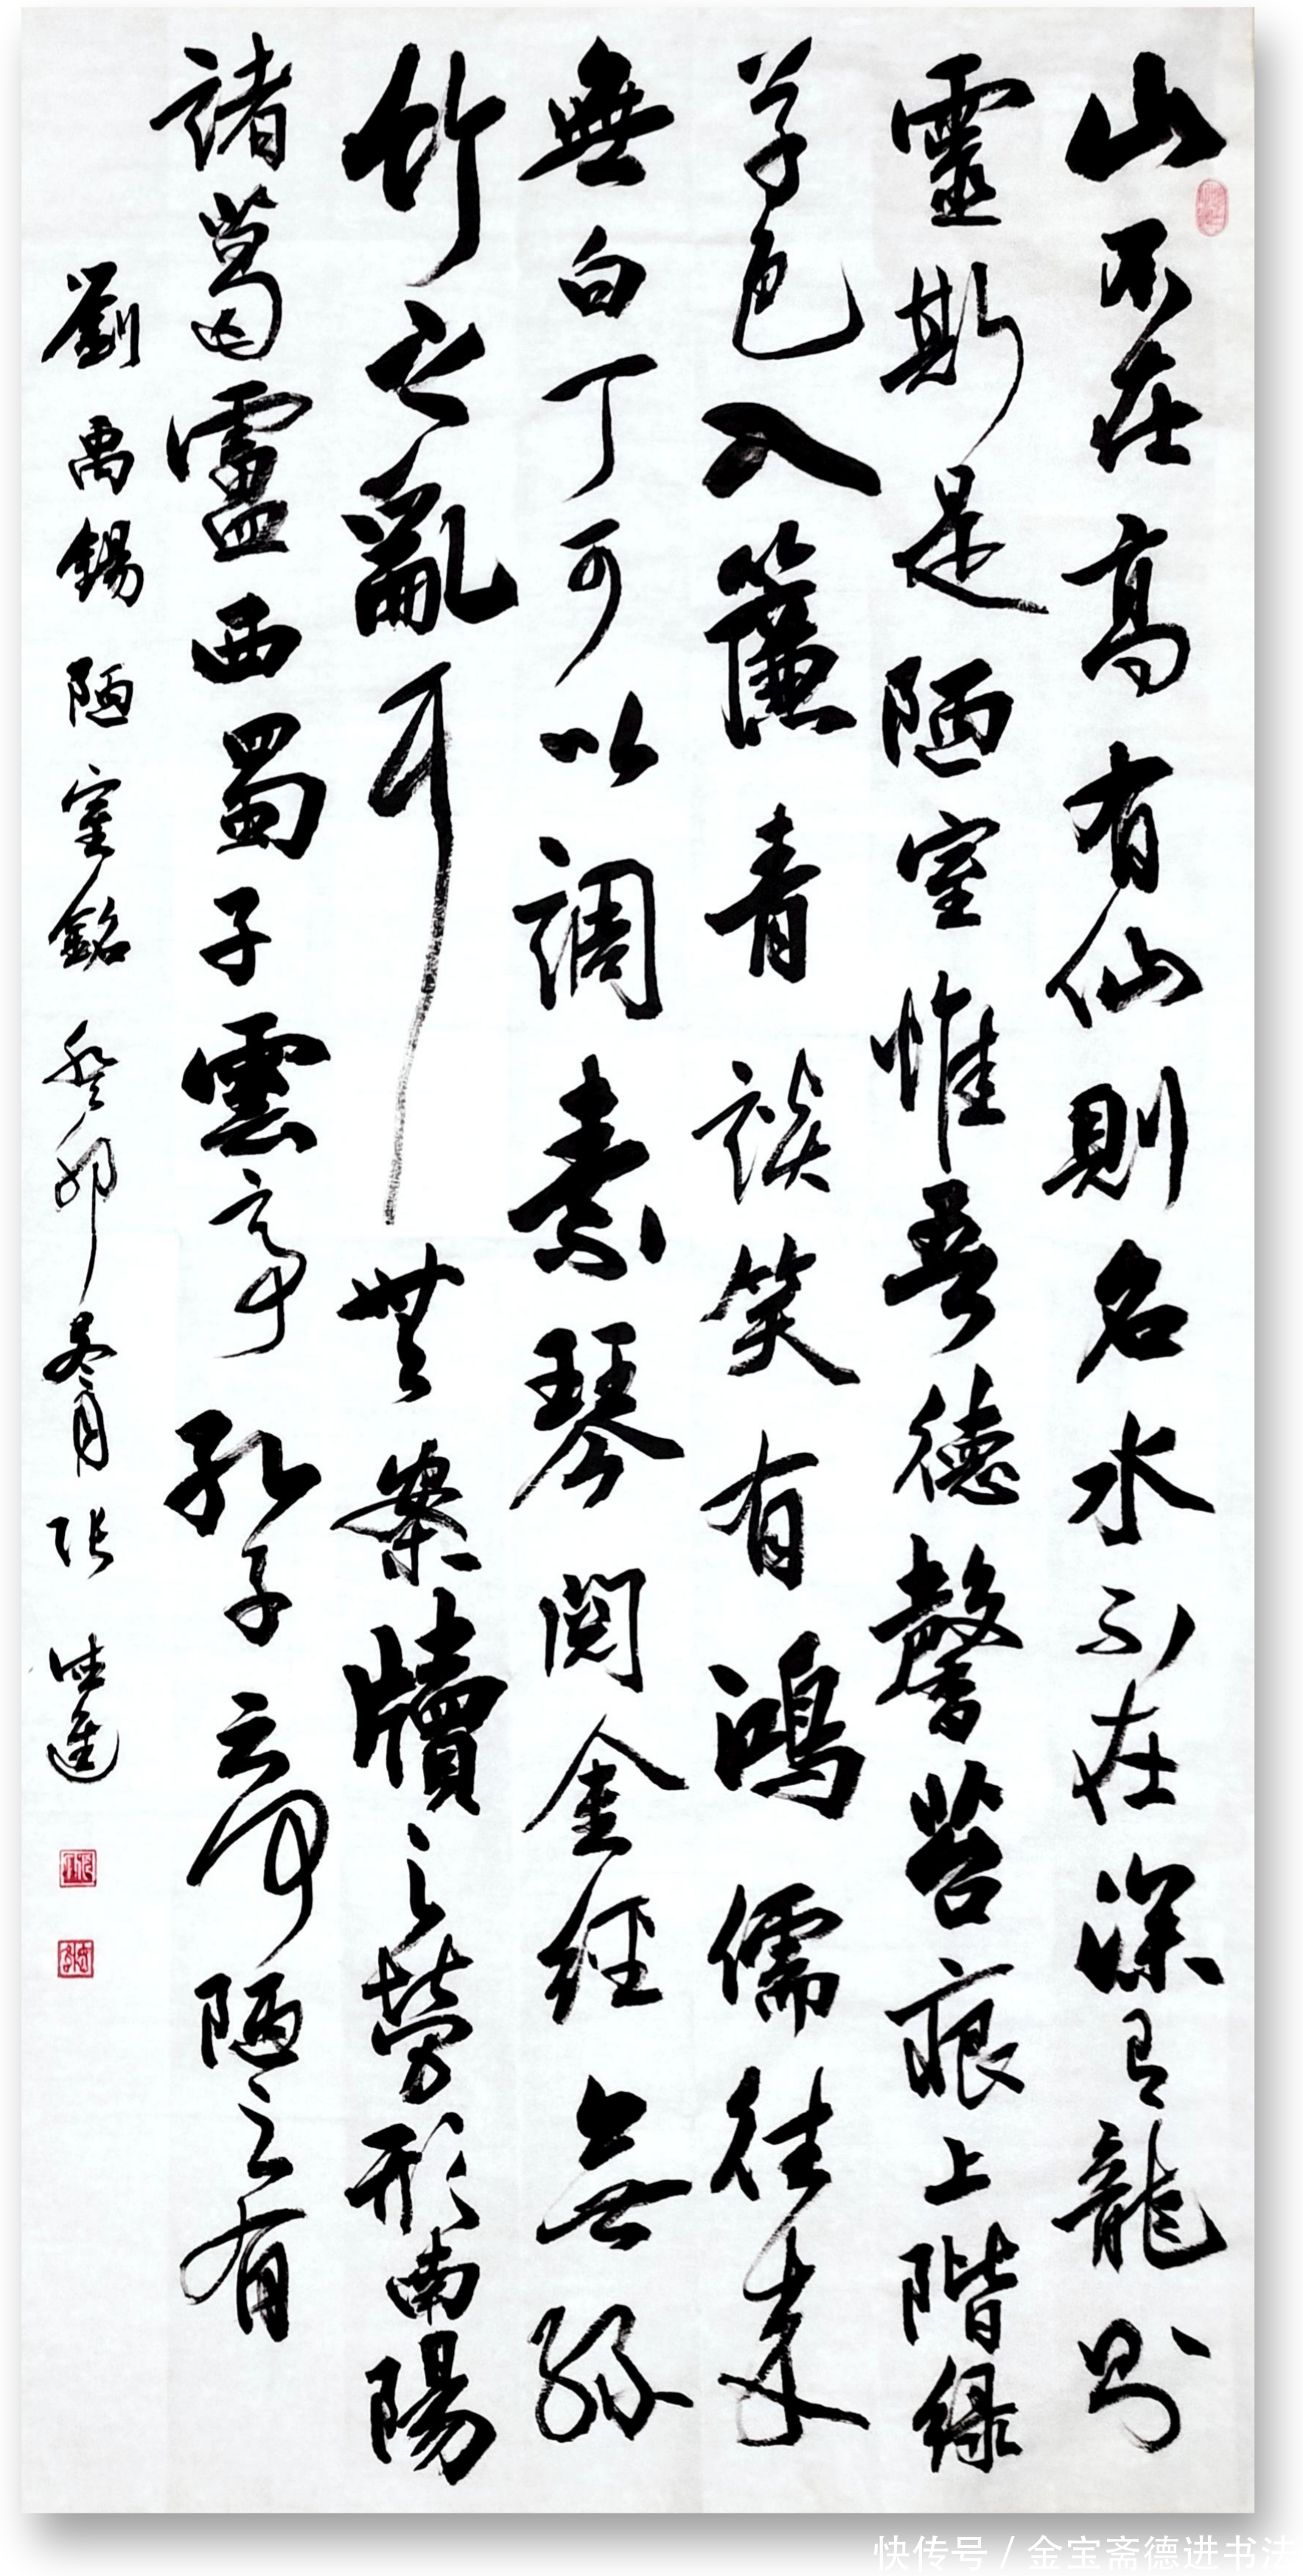 山不在高有仙則名水不在深有龍則
靈斯是陋室惟吾德馨苔痕上階緑
草色入簾青談笑有鴻儒往来
無白丁可以調素琴閱金經無絲
竹之亂耳無案牘之勞形南陽
諸葛廬西蜀子雲亭孔子云何陋之有
劉禹錫陋室銘癸卯冬月張德進
快传号 / 金宝斋德进书法